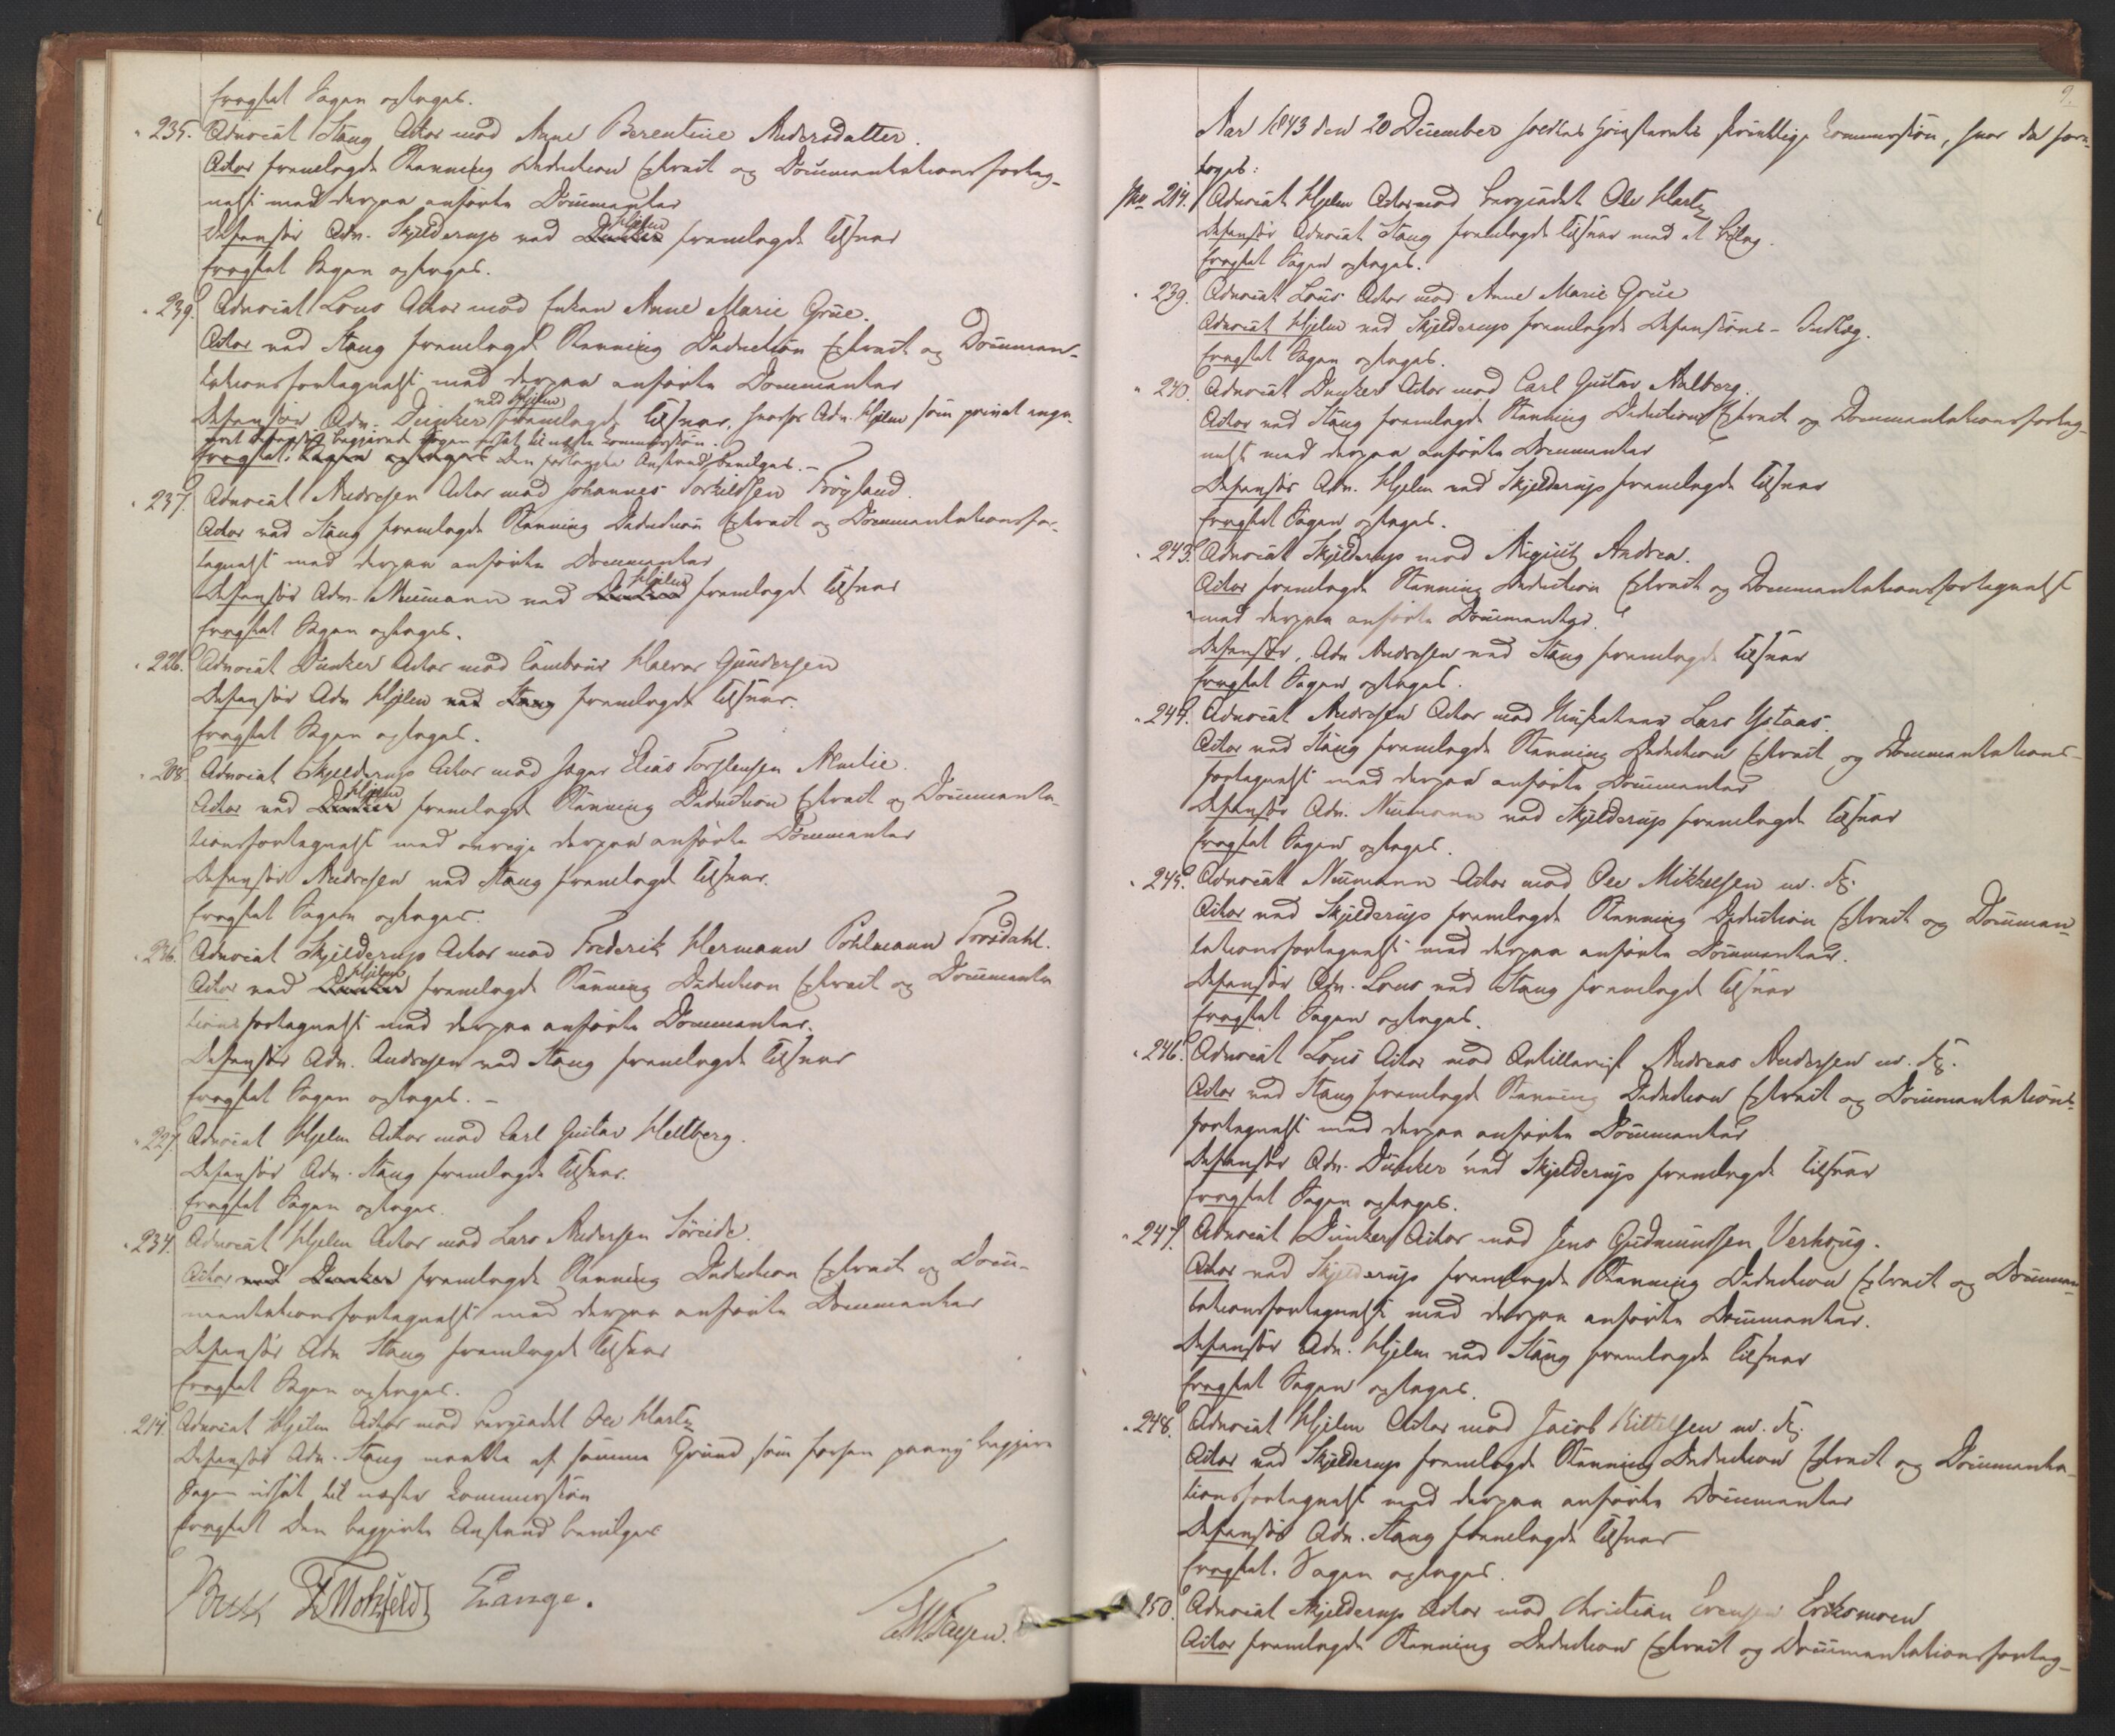 fragtet Sagen optages.
" 235. Advocat Stang Actor mod Anne Berentine Andersdatter.
Actor fremlagde Stævning Deduction Extract og Documentationsforteg-
nelse med derpaa anførte Documenter
Defensor Adv. Skjelderup ved Dunker Hjelm fremlagde Tilsvar
Sagen optages.
" 239. Advocat Lous Actor mod Enken Anne Marie Grüe.
Actor ved Stang fremlagde Stævning Deduction Extract og Documen-
tationsfortegnelse med derpaa anførte Documenter
ved Hjelm
Defensor Adv. Dunker fremlagde Tilsvar, hvorfor Adv. Hjelm som privat enga-
geret Defensor begjærede Sagen udsat til næste Commission.
Sagen optages Den forlangte Anstand bevilges.
" 237. Advocat Andresen Actor mod Johannes Torkildsen Frøyland.
Actor ved Stang fremlagde Stævning Deduction Extract og Documentationsfor-
tegnelse med derpaa anførte Documenter
Defensor Adv. Neumann ved Dunker Hjelm fremlagde Tilsvar
Sagen optages.
" 226. Advocat Dunker Actor mod Tambour Halvor Gundersen
Defensor Adv Hjelm ved Stang fremlagde Tilsvar.
Sagen optages.
" 208. Advocat Skjelderup Actor mod Jæger Elias Torstensen
Actor ved Dunker Hjelm fremlagde Stævning Deduction Extract og Documenta-
tionsfortegnelse med øvrige derpaa anførte Documenter
Defensor Andresen ved Stang fremlagde Tilsvar.
Sagen optages.
" 236. Advocat Skjelderup Actor mod Frederik Hermann Pohlmann Trosdahl.
Actor ved Dunker Hjelm fremlagde Stævning Deduction Extract og Documenta
tionsfortegnelse med derpaa anførte Documenter.
Defensor Adv. Andresen ved Stang fremlagde Tilsvar
Sagen optages. –
" 227. Advocat Hjelm Actor mod Carl Gustav Hellberg.
Defensor Adv. Stang fremlagde Tilsvar.
Sagen optages.
" 234. Advocat Hjelm Actor mod Lars Andersen Söreide.
Actor ved Dunker fremlagde Stævning Deduction Extract og Docu-
mentationsfortegnelse med derpaa anførte Documenter
Defensor Adv Stang fremlagde Tilsvar
Sagen optages.
" 214. Advocat Hjelm Actor mod Bergcadet Ole Hartz
Defensor Adv. Stang maatte af samme Grund som forhen paany begjære
Sagen udsat til næste Commission
Den begjærte Anstand bevilges
Bull F Motzfeldt Lange.
9.
Aar 1843 den 20 December holdtes Høiesterets skriftlige Commission, hvor da fore-
toges:
No 214. Advocat Hjelm Actor mod Bergcadet Ole Hartz
Defensor Advocat Stang fremlagde Tilsvar med et Bilag.
Sagen optages.
" 239. Advocat Lous Actor mod Anne Marie Grüe
Advocat Hjelm ved Skjelderup fremlagde Defensions-Indlæg.
Sagen optages.
" 240. Advocat Dunker Actor mod Carl Gustav Aalberg.
Actor ved Stang fremlagde Stævning Deduction Extract og Documentationsforteg-
nelse med derpaa anførte Documenter
Defensor Adv. Hjelm ved Skjelderup fremlagde Tilsvar
Sagen optages.
" 243. Advocat Skjelderup mod August Andrea.
Actor fremlagde Stævning Deduction Extract og Documentationsfortegnelse
med derpaa anførte Documenter.
Defensor, Adv Andresen ved Stang fremlagde Tilsvar
Sagen optages.
" 244. Advocat Andresen Actor mod Musketeer Lars Ystaas.
Actor ved Stang fremlagde Stævning Deduction Extract og Documentations-
fortegnelse med derpaa anførte Documenter
Defensor Adv. Neumann ved Skjelderup fremlagde Tilsvar
Sagen optages.
" 245. Advocat Neumann Actor mod Ole Mikkelsen m. fl.
Actor ved Skjelderup fremlagde Stævning Deduction Extract og Documen-
tationsfortegnelse med derpaa anførte Documenter.
Defensor Adv. Lous ved Stang fremlagde Tilsvar
Sagen optages.
" 246. Advocat Lous Actor mod Artillerist Andreas Andersen m. fl.
Actor ved Stang fremlagde Stævning Deduction Extract og Documentations-
fortegnelse med derpaa anførte Documenter
Defensor Adv. Dunker ved Skjelderup fremlagde Tilsvar
Sagen optages.
" 247. Advocat Dunker Actor mod Jens Gudmundsen Verhoug.
Actor ved Skjelderup fremlagde Stævning Deduction Extract og Documen-
tationsfortegnelse med derpaa anførte Documenter.
Defensor Adv. Hjelm ved Stang fremlagde Tilsvar
Sagen optages.
" 248. Advocat Hjelm Actor mod Jacob Kittelsen m. fl.
Actor ved Skjelderup fremlagde Stævning Deduction Extract og Documenta-
tionsfortegnelse med derpaa anførte Documenter
Defensor Adv. Stang fremlagde Tilsvar
Sagen optages.
250. Advocat Skjelderup Actor mod Christian Evensen Eriksmoen
Actor fremlagde Stævning Deduction Extract og Documentationsforteg-